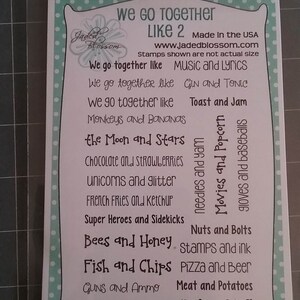 We Go Together
Like 2
Jaded Blossom
Made in the USA
www.jadedblossom.com
Stamps shown are not actual size
We go together like
Music and Lyrics
We go together like
Gin and Tonic
We go together like
Toast and Jam
Monkeys and Bananas
the Moon and Stars
Chocolate and Strawberries
Unicorns and Glitter
French Fries and Ketchup
Super Heroes and Sidekicks
needles and yarn
Movies and Popcorn
gloves and baseballs
Bees and Honey
Nuts and Bolts
Stamps and ink
Fish and Chips
Pizza and Beer
Guns and Ammo
Meat and Potatoes